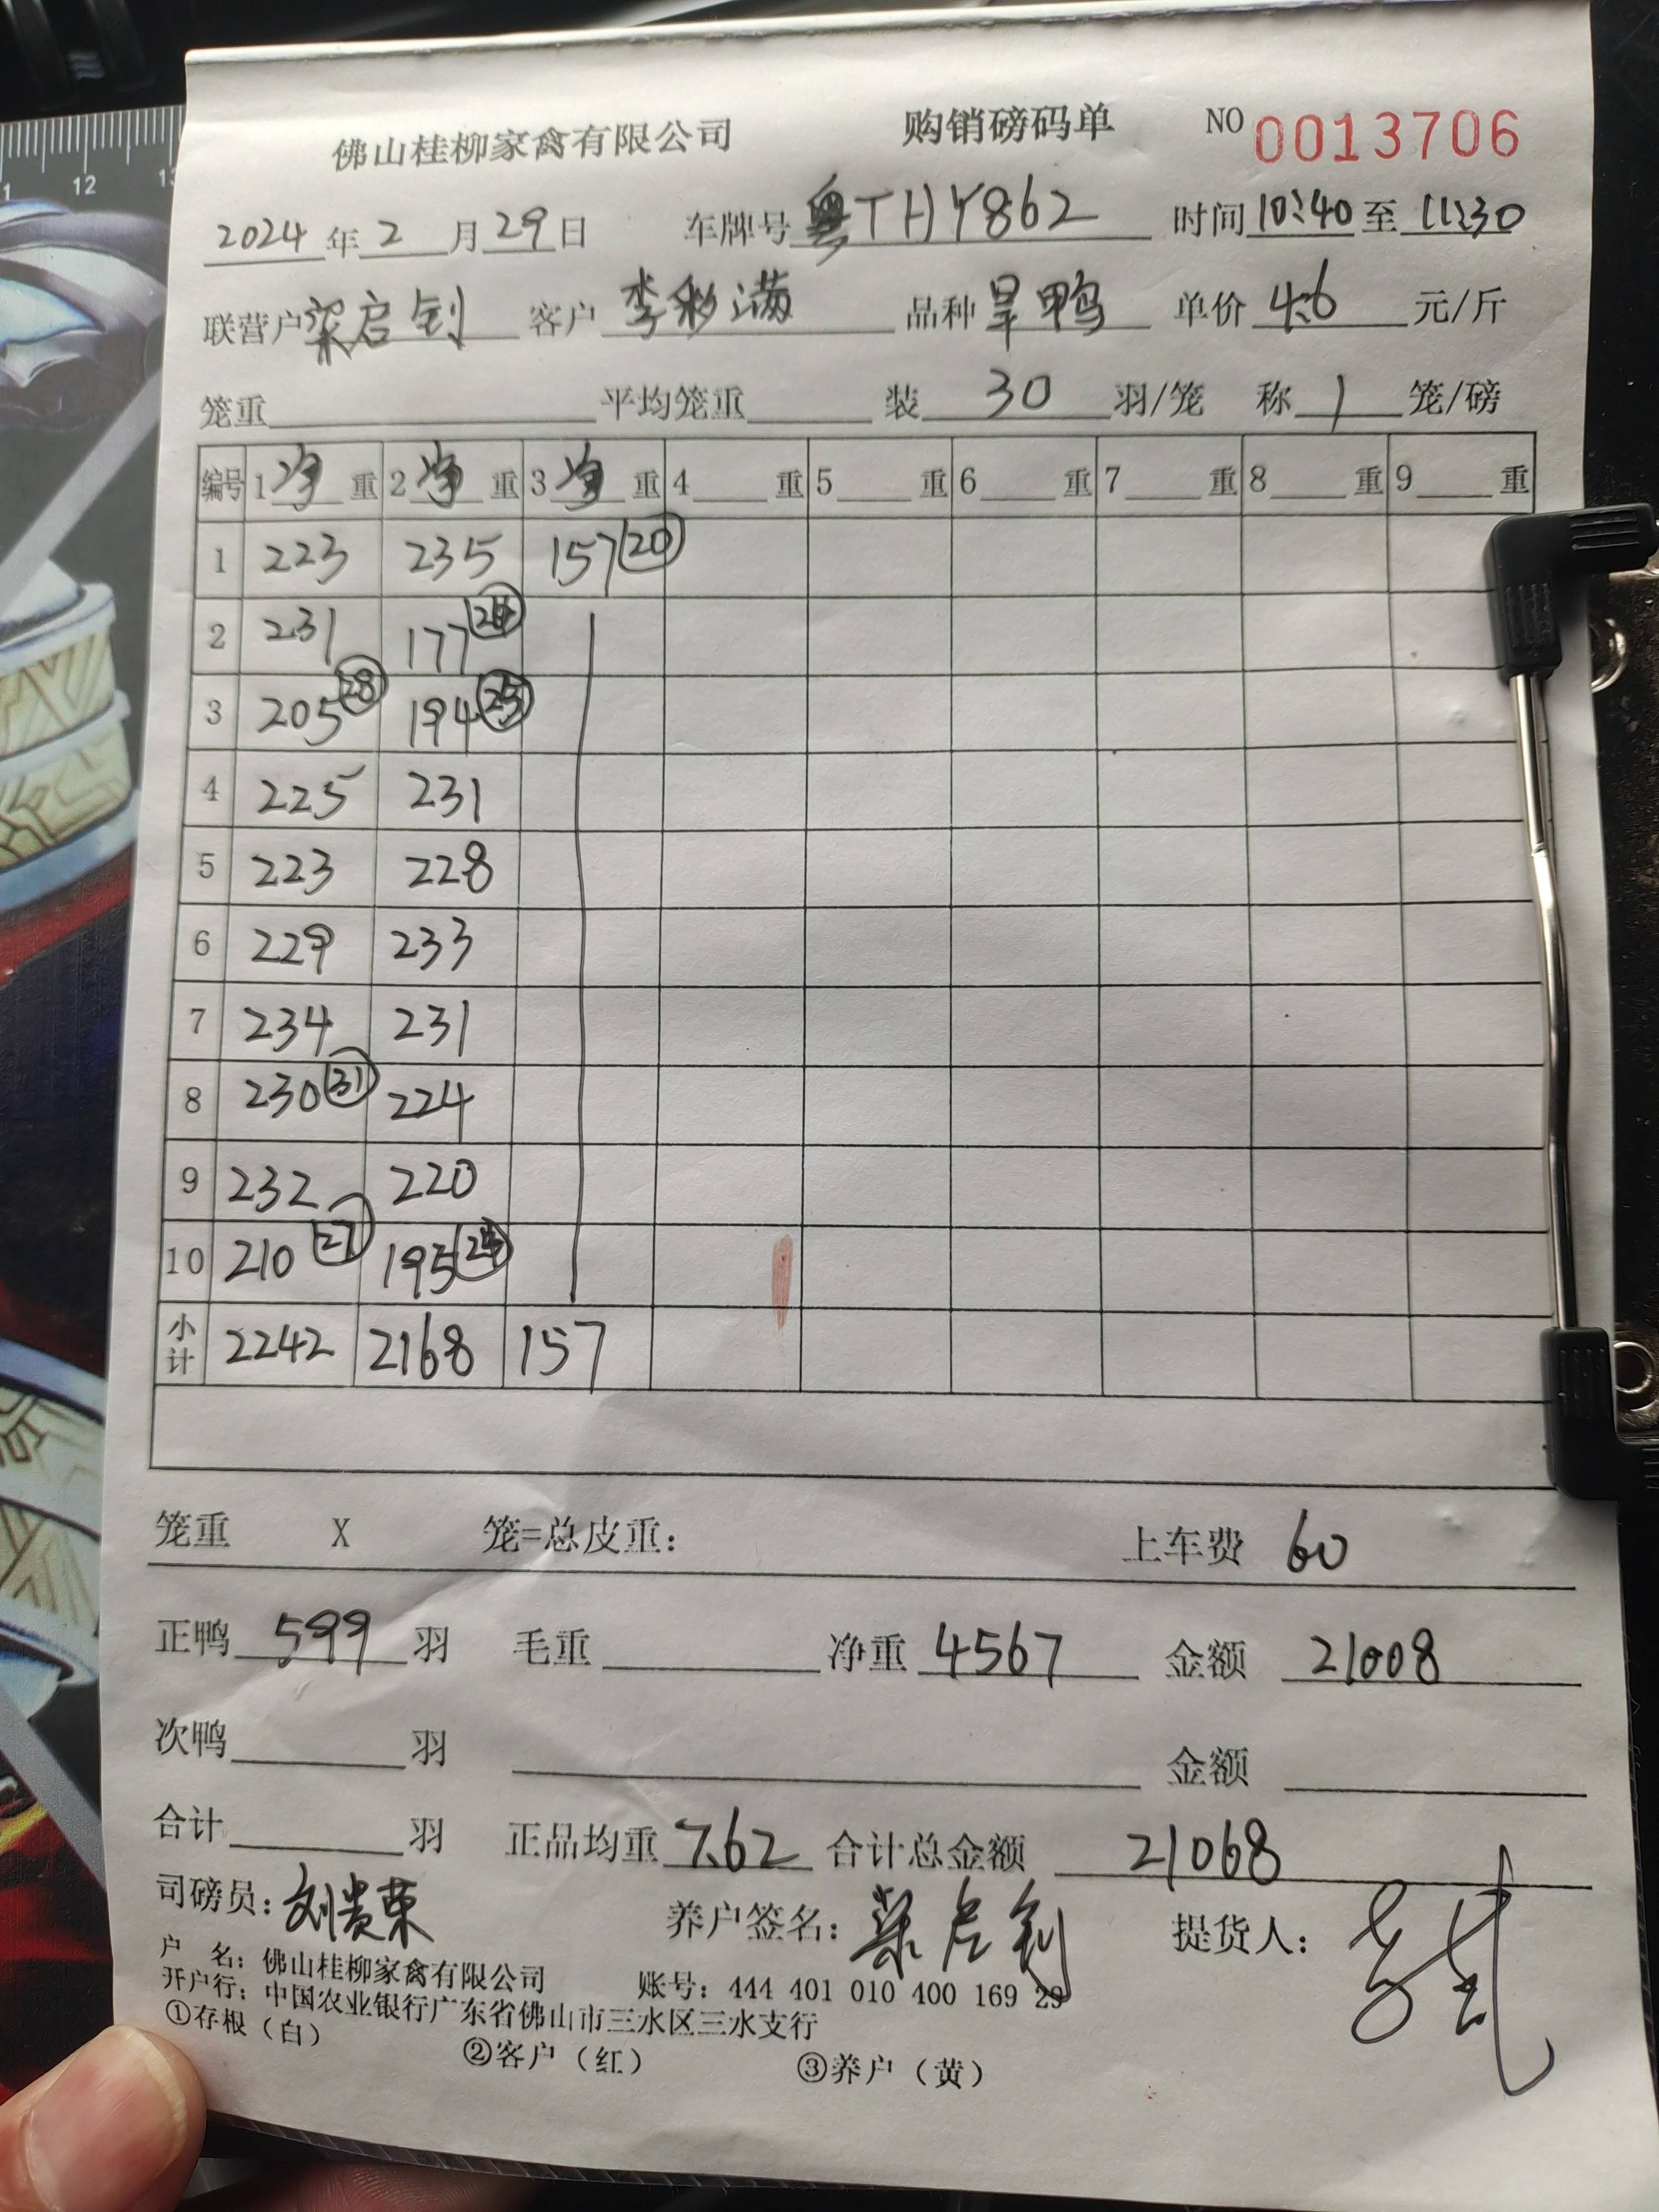 佛山桂柳家禽有限公司 购销磅码单 NO 0013706
2024年2月29日 车牌号粤THY862 时间10:40至11:30
联营户梁启钊 客户李彩满 品种旱鸭 单价4.6元/斤
笼重 平均笼重 装30羽/笼 称1笼/磅
编号 1净重 2净重 3净重 4重 5重 6重 7重 8重 9重
1 223 235 157(20)
2 231 177
3 205(28) 194(25)
4 225 231
5 223 228
6 229 233
7 234 231
8 230(31) 224
9 232 220
10 210(27) 195
小计 2242 2168 157
笼重 X 笼=总皮重: 上车费 60
正鸭599羽 毛重 净重4567 金额 21008
次鸭 羽 金额
合计 羽 正品均重7.62 合计总金额 21068
司磅员:刘贵荣 养户签名:梁启钊 提货人:
户 名:佛山桂柳家禽有限公司 账号:444 401 010 400 169 29
开户行:中国农业银行广东省佛山市三水区三水支行
①存根(白) ②客户(红) ③养户(黄)
12